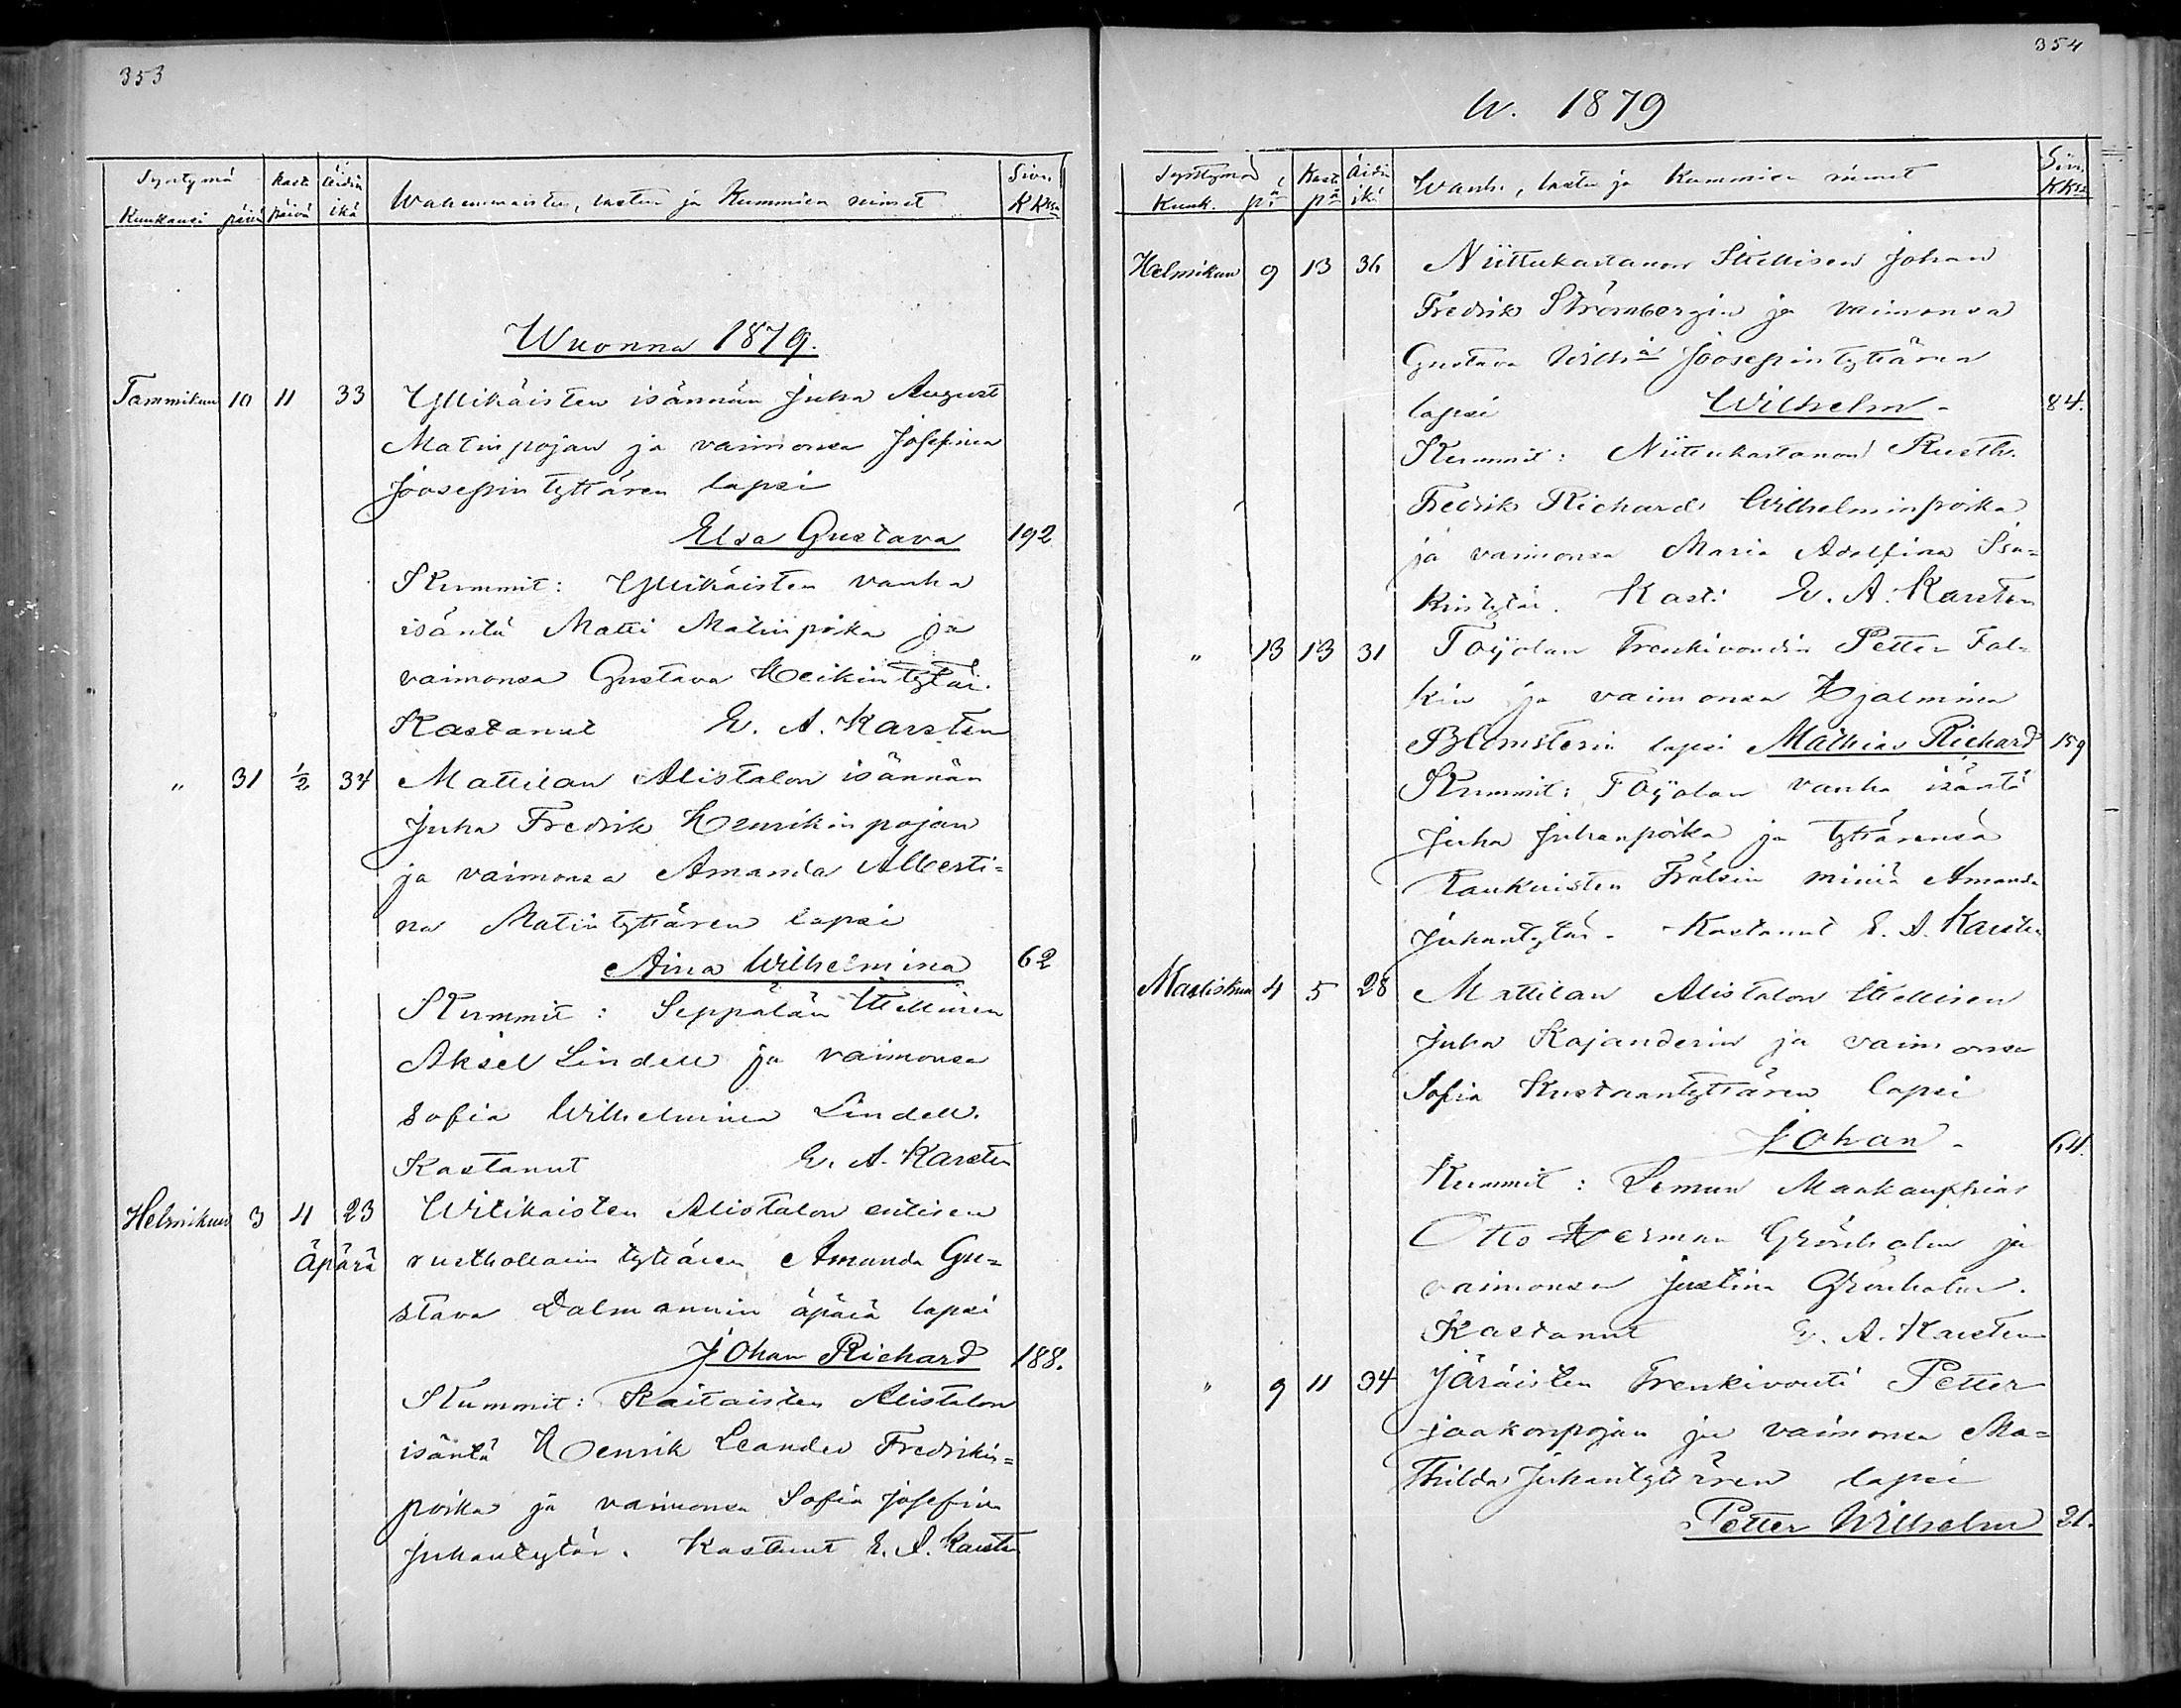 353
Syntymä Kaste Äidin Wanhemmaisten, lasten ja Kummien nimet Sivu
Kuukausi päivä päivä ikä K Kssa
Wuonna 1879.
Tammikuu 10 11 33 Yllikäisten isännän Juha August
Matinpojan ja vaimonsa Josefina
Joosepintyttären lapsi
Elsa Gustava 192
Kummit: Yllikäisten vanha
isäntä Matti Matinpoika ja
vaimonsa Gustava Heikintytär.
Kastanut E. A. Karsten
" 31 1/2 34 Mattilan Alistalon isännän
Juha Fredrik Henrikinpojan
ja vaimonsa Amanda Alberti=
na Matintyttären lapsi
Aina Wilhelmina 62
Kummit: Seppälän Itellinen
Aksel Lindell ja vaimonsa
Sofia Wilhelmina Lindell.
Kastanut E. A. Karsten
Helmikuu 3 4 23 Witikaisten Alistalon entisen
Äpärä rusthollarin tyttären Amanda Gu=
stava Dalmannin äpärä lapsi
Johan Richard 188.
Kummit: Kaitaisten Alistalon
isäntä Henrik Leander Fredrikin=
poika ja vaimonsa Sofia Josefina
Juhantytär. Kastanut E. A. Karsten
354
W. 1879
Syntymä Kaste Äidin Wanh., lasten ja Kummien nimet Siv.
Kuuk. pä pä ikä KKssa
Helmikuu 9 13 36 Niittukartanon Itellisen Johan
Fredrik Strömbergin ja vaimonsa
Gustava Joosepintyttären
lapsi Wilhelm - 84.
Kummit: Niittukartanon Rusth.
Fredrik Richard Wilhelminpoika
ja vaimonsa Maria Adolfina Isa=
kintytär. Kast: E. A. Karsten
" 13 13 31 Töyölan Frenkivoudin Petter Fal=
kin ja vaimonsa Hjalmina
Blomsterin lapsi Mathias Richard 159
Kummit: Töyölan vanha isäntä
Juha Juhanpoika ja tyttärensä
Frälsin miniä Amanda
Juhantytär. Kastanut E. A. Karsten
Maaliskuu 4 5 28 Mattilan Alistalon Itellisen
Juha Kajanderin ja vaimonsa
Sofia Kustaantyttären lapsi
Johan - 64.
Kummit: Lemun Maakauppias
Otto Herman Grönholm ja
vaimonsa Justina Grönholm.
Kastanut E. A. Karsten
" 9 11 34 Järäisten Frenkivouti Petter
Jaakonpojan ja vaimonsa Ma=
thilda Juhantyttären lapsi
Petter Wilhelm 21.